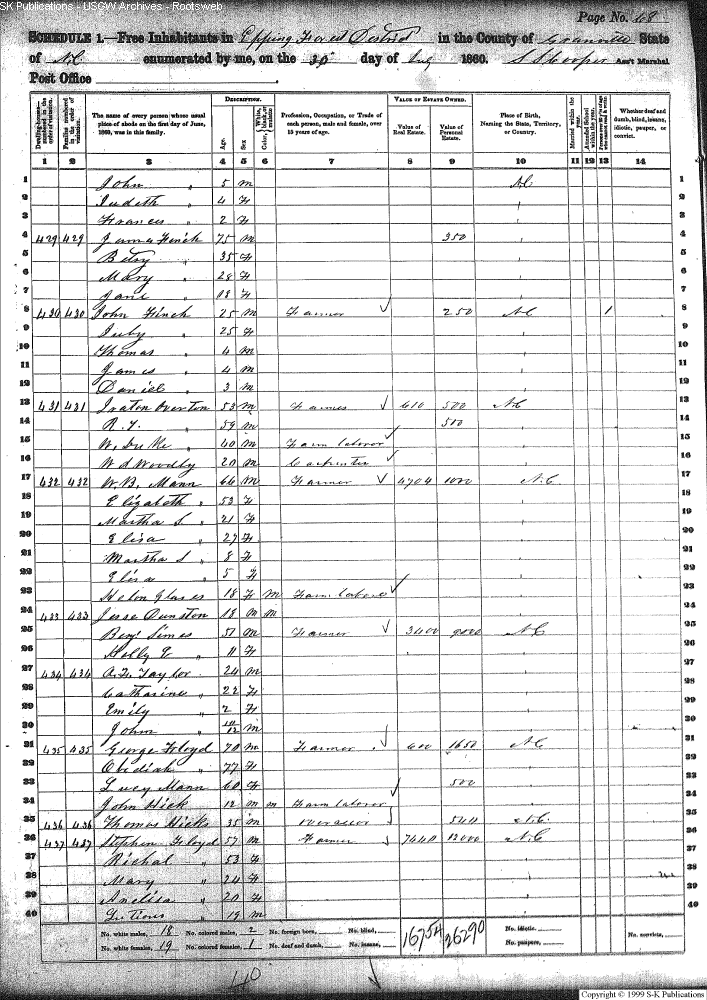 SK Publications - USGW Archives - Rootsweb
Page No. 68
SCHEDULE 1.—Free Inhabitants in Epping Forest District in the County of Granville State
of NC enumerated by me, on the 30 day of Aug 1860. Cooper Ass't Marshal
Post Office
Dwelling-houses—numbered in the order of visitation.
Families numbered in the order of visitation.
The name of every person whose usual place of abode on the first day of June, 1860, was in this family.
DESCRIPTION.
Age.
Sex.
Color, White, black, or mulatto
Profession, Occupation, or Trade of each person, male and female, over 15 years of age.
VALUE OF ESTATE OWNED.
Value of Real Estate.
Value of Personal Estate.
Place of Birth, Naming the State, Territory, or Country.
Married within the year.
Attended School within the year.
Whether deaf and dumb, blind, insane, idiotic, pauper, or convict.
1 2 3 4 5 6 7 8 9 10 11 12 13 14
1 John " 5 m NC 1
2 Judeth " 4 F 2
3 Frances " 2 F 3
4 429 429 James Finch 75 m 350 4
5 Betsy " 35 F 5
6 Mary " 28 F 6
7 Jane " 18 F 7
8 430 430 John Finch 25 m Farmer 250 NC 1 8
9 Juby " 25 F 9
10 Thomas " 4 m 10
11 James " 4 m 11
12 Daniel " 3 m 12
13 431 431 Overton 53 m Farmer 610 500 NC 13
14 59 m 500 14
15 W. Duke 40 m Farm laborer 15
16 W d Woodly 20 m Carpenter 16
17 432 432 W. B. Mann 66 m Farmer 4704 1000 N.C 17
18 Elizabeth " 53 F 18
19 Martha S " 21 F 19
20 Elisa " 27 F 20
21 Martha S " 8 F 21
22 Elisa " 5 F 22
23 Helen 18 F m Farm laborer 23
24 433 433 Jesse Dunston 18 m m 24
25 Benj Simes 51 m Farmer 3400 9000 NC 25
26 " 11 F 26
27 434 434 Taylor 24 m 27
28 Catharine " 22 F 28
29 Emily " 2 F 29
30 John " m 30
31 435 435 George Floyd 70 m Farmer 600 1650 NC 31
32 Obediah " 77 F 32
33 Lucy Mann 60 F 500 33
34 John Hick 12 m m Farm laborer 34
35 436 436 Thomas Hicks 35 m Overseer 540 N.C. 35
36 437 437 Stephen Floyd 57 m Farmer 7440 12000 N.C 36
37 Richal " 53 F 37
38 Mary " 24 F 38
39 " 20 F 39
40 " 19 m 40
No. white males, 18 No. colored males, 2 No. foreign born, No. blind, 16754 26290 No. idiotic, No. convicts,
No. white females, 19 No. colored females, 1 No. deaf and dumb, No. insane, No. paupers,
40
Copyright © 1999 S-K Publications